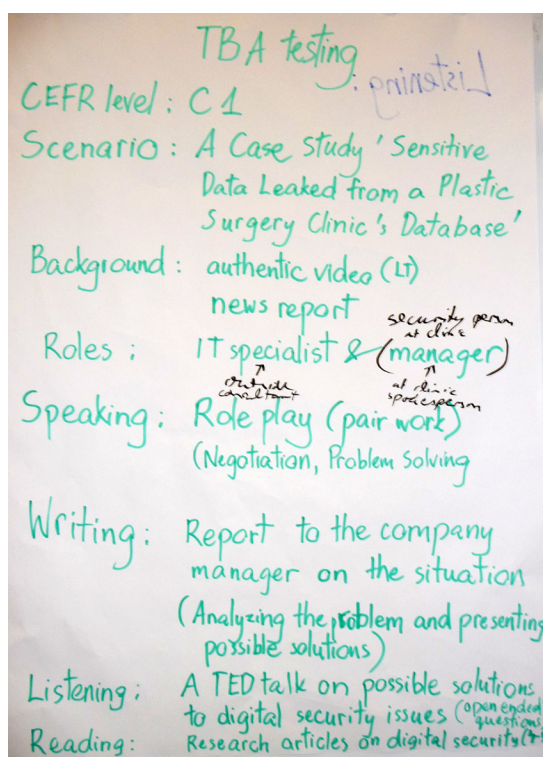 TBA testing
Listening:
CEFR level: C1
Scenario: A Case Study 'Sensitive
Data Leaked from a Plastic
Surgery Clinic's Database'
Background: authentic video (LT)
news report
security person
at clinic
Roles: IT specialist & (manager)
outside
consultant
at clinic
spokesperson
Speaking: Role play (pair work)
(Negotiation, Problem Solving
Writing: Report to the company
manager on the situation
(Analyzing the problem and presenting
possible solutions)
Listening: A TED talk on possible solutions
to digital security issues (open ended
questions
Reading: Research articles on digital security